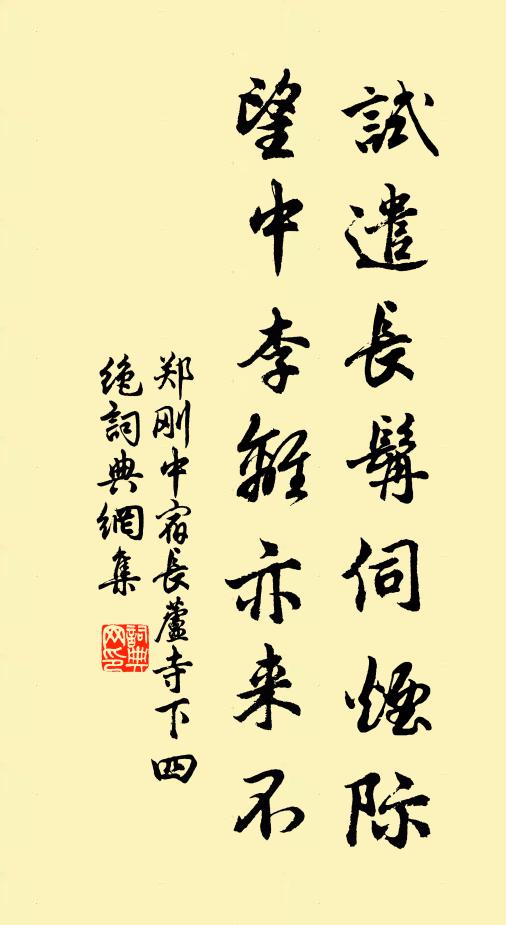 試遣長髯伺煙际
望中李離亦来不
郑刚中宿長蘆寺下四
绝詞典網集
詞典
网印